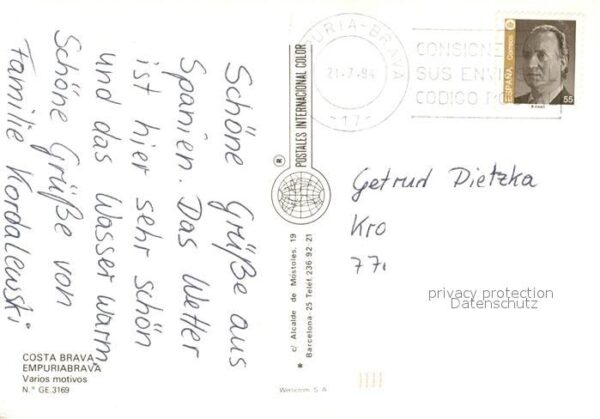 Schöne Grüße aus
Spanien. Das Wetter
ist hier sehr schön
und das Wasser warm.
Schöne Grüße von
Familie Kordalewski
COSTA BRAVA
EMPURIABRAVA
Varios motivos
N.° GE.3169
® POSTALES INTERNACIONAL COLOR
c/ Alcalde de Móstoles, 19
Barcelona-25 Telef 236 92 21
S. A.
PURIA-BRAVA
21-7-94
-17-
CONSIGNE
SUS ENVI
CODIGO PO
ESPAÑA
Correos
55
Getrud Dietzka
Kro
77
privacy protection
Datenschutz